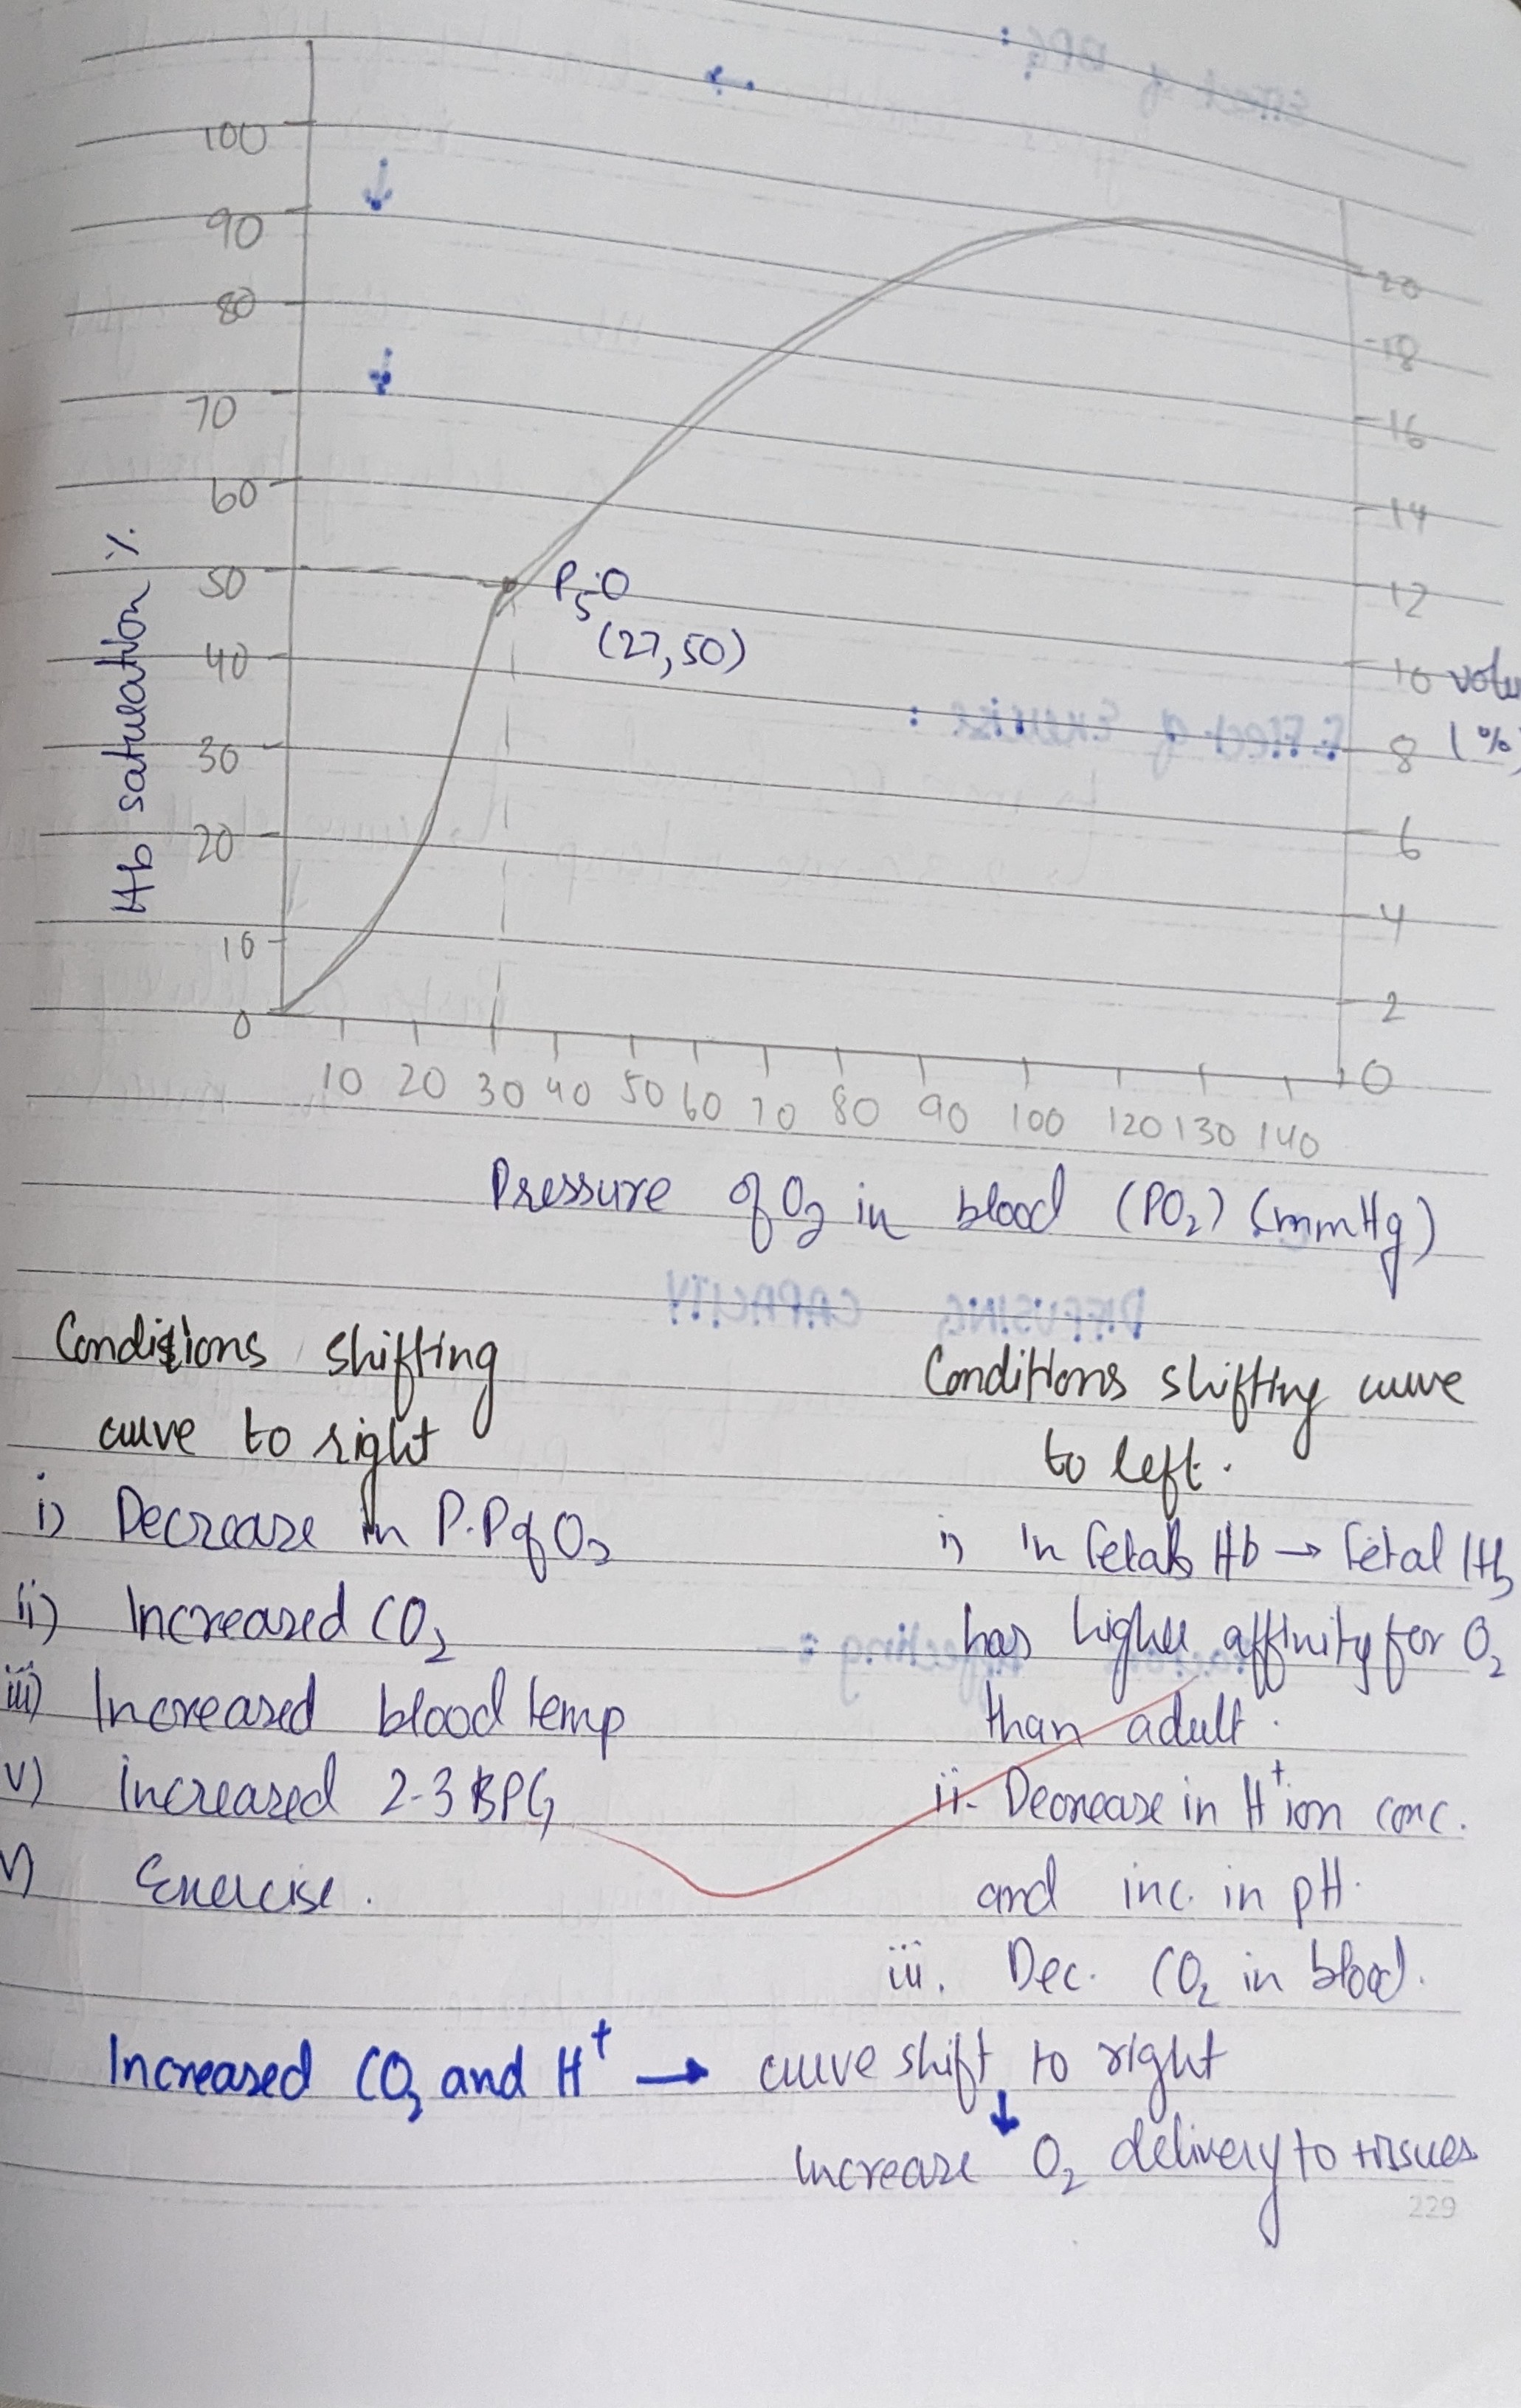 100
90
80
70
60
50
40
30
20
10
0
Hb saturation %
P50
(27,50)
20
18
16
14
12
10
8
6
4
2
0
(%)
10 20 30 40 50 60 70 80 90 100 120 130 140
Pressure of O2 in blood (PO2) (mmHg)
Conditions shifting
curve to right
i) Decrease in P.P of O2
ii) Increased CO2
iii) Increased blood temp
v) increased 2-3 BPG
v) Exercise.
Conditions shifting curve
to left.
i) In fetal Hb → fetal Hb
has higher affinity for O2
than adult.
ii- Decrease in H+ ion conc.
and inc. in pH.
iii. Dec. CO2 in blood.
Increased CO2 and H+ → curve shift to right
↓
Increase O2 delivery to tissues
229